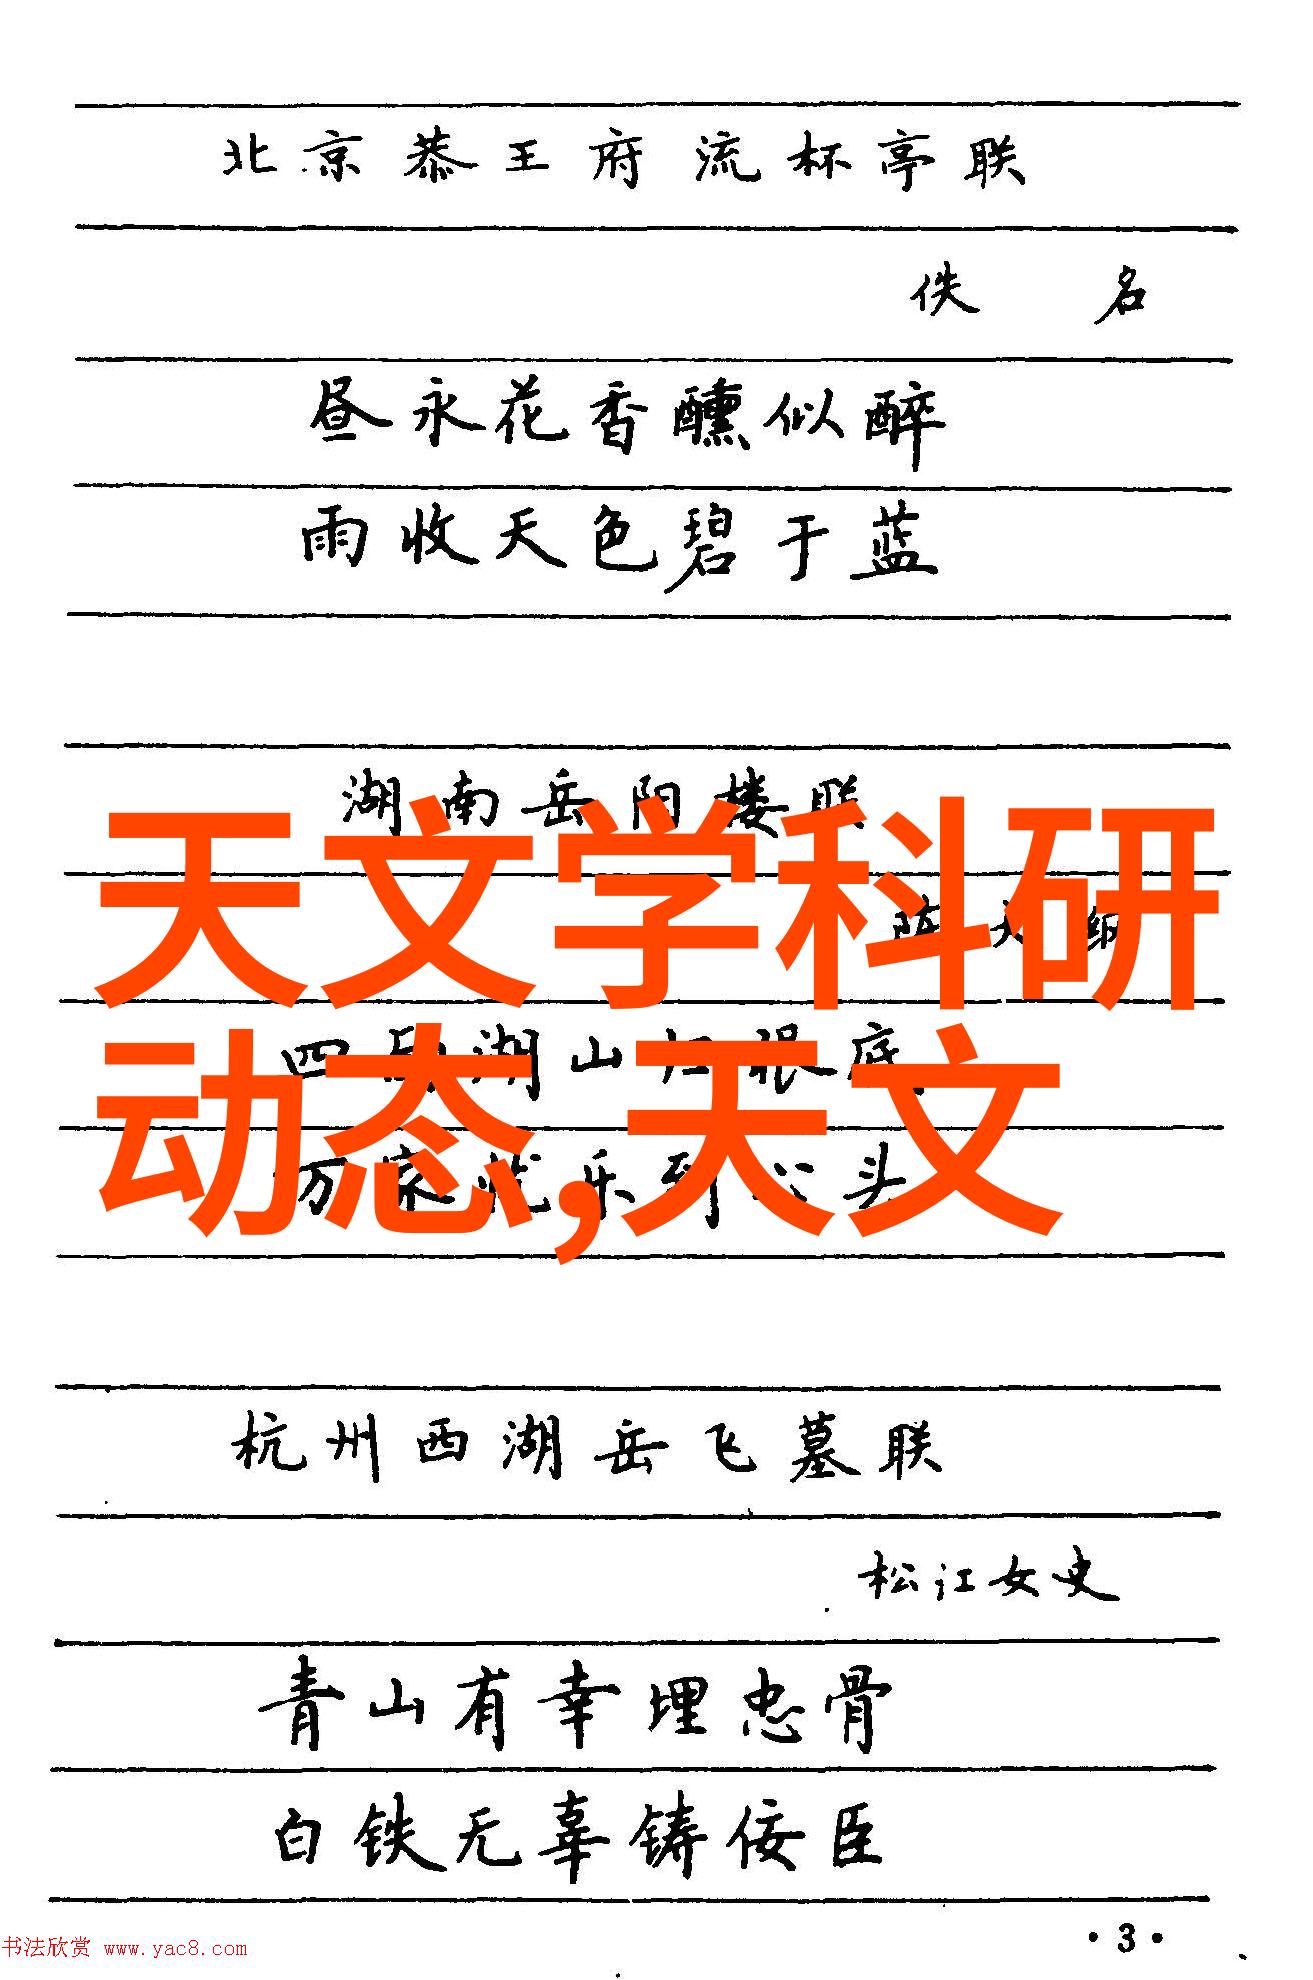 北京恭王府流杯亭联
佚名
昼永花香醺似醉
雨收天色碧于蓝
湖南岳阳楼联
天文学科研
动态,天文
四面湖山归眼底
万家忧乐到心头
杭州西湖岳飞墓联
松江女史
青山有幸埋忠骨
白铁无辜铸佞臣
·3·
书法欣赏 www.yac8.com